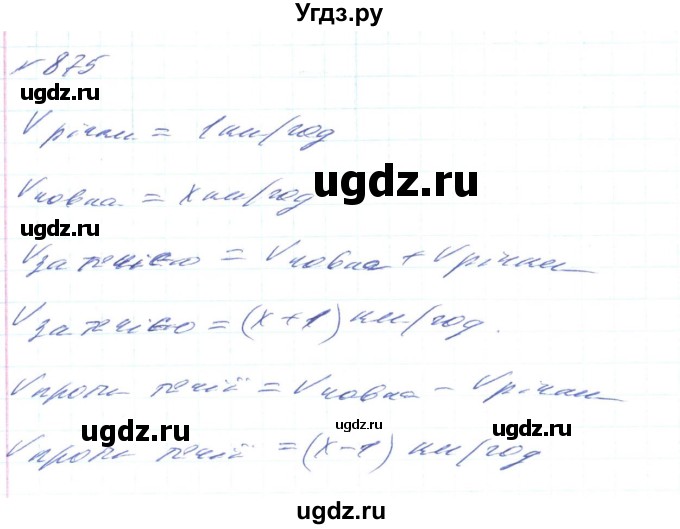 Угдз.ру
№ 875
ugdz.ru
Vрічки = 1 км/год
Vчовна = x км/год
ugdz.ru
ugdz.ru
Vза течією = Vчовна + Vрічки
Vза течією = (x+1) км/год.
Vпроти течії = Vчовна - Vрічки
ugdz.ru
ugdz.ru
Vпроти течії = (x-1) км/год
ugdz.ru